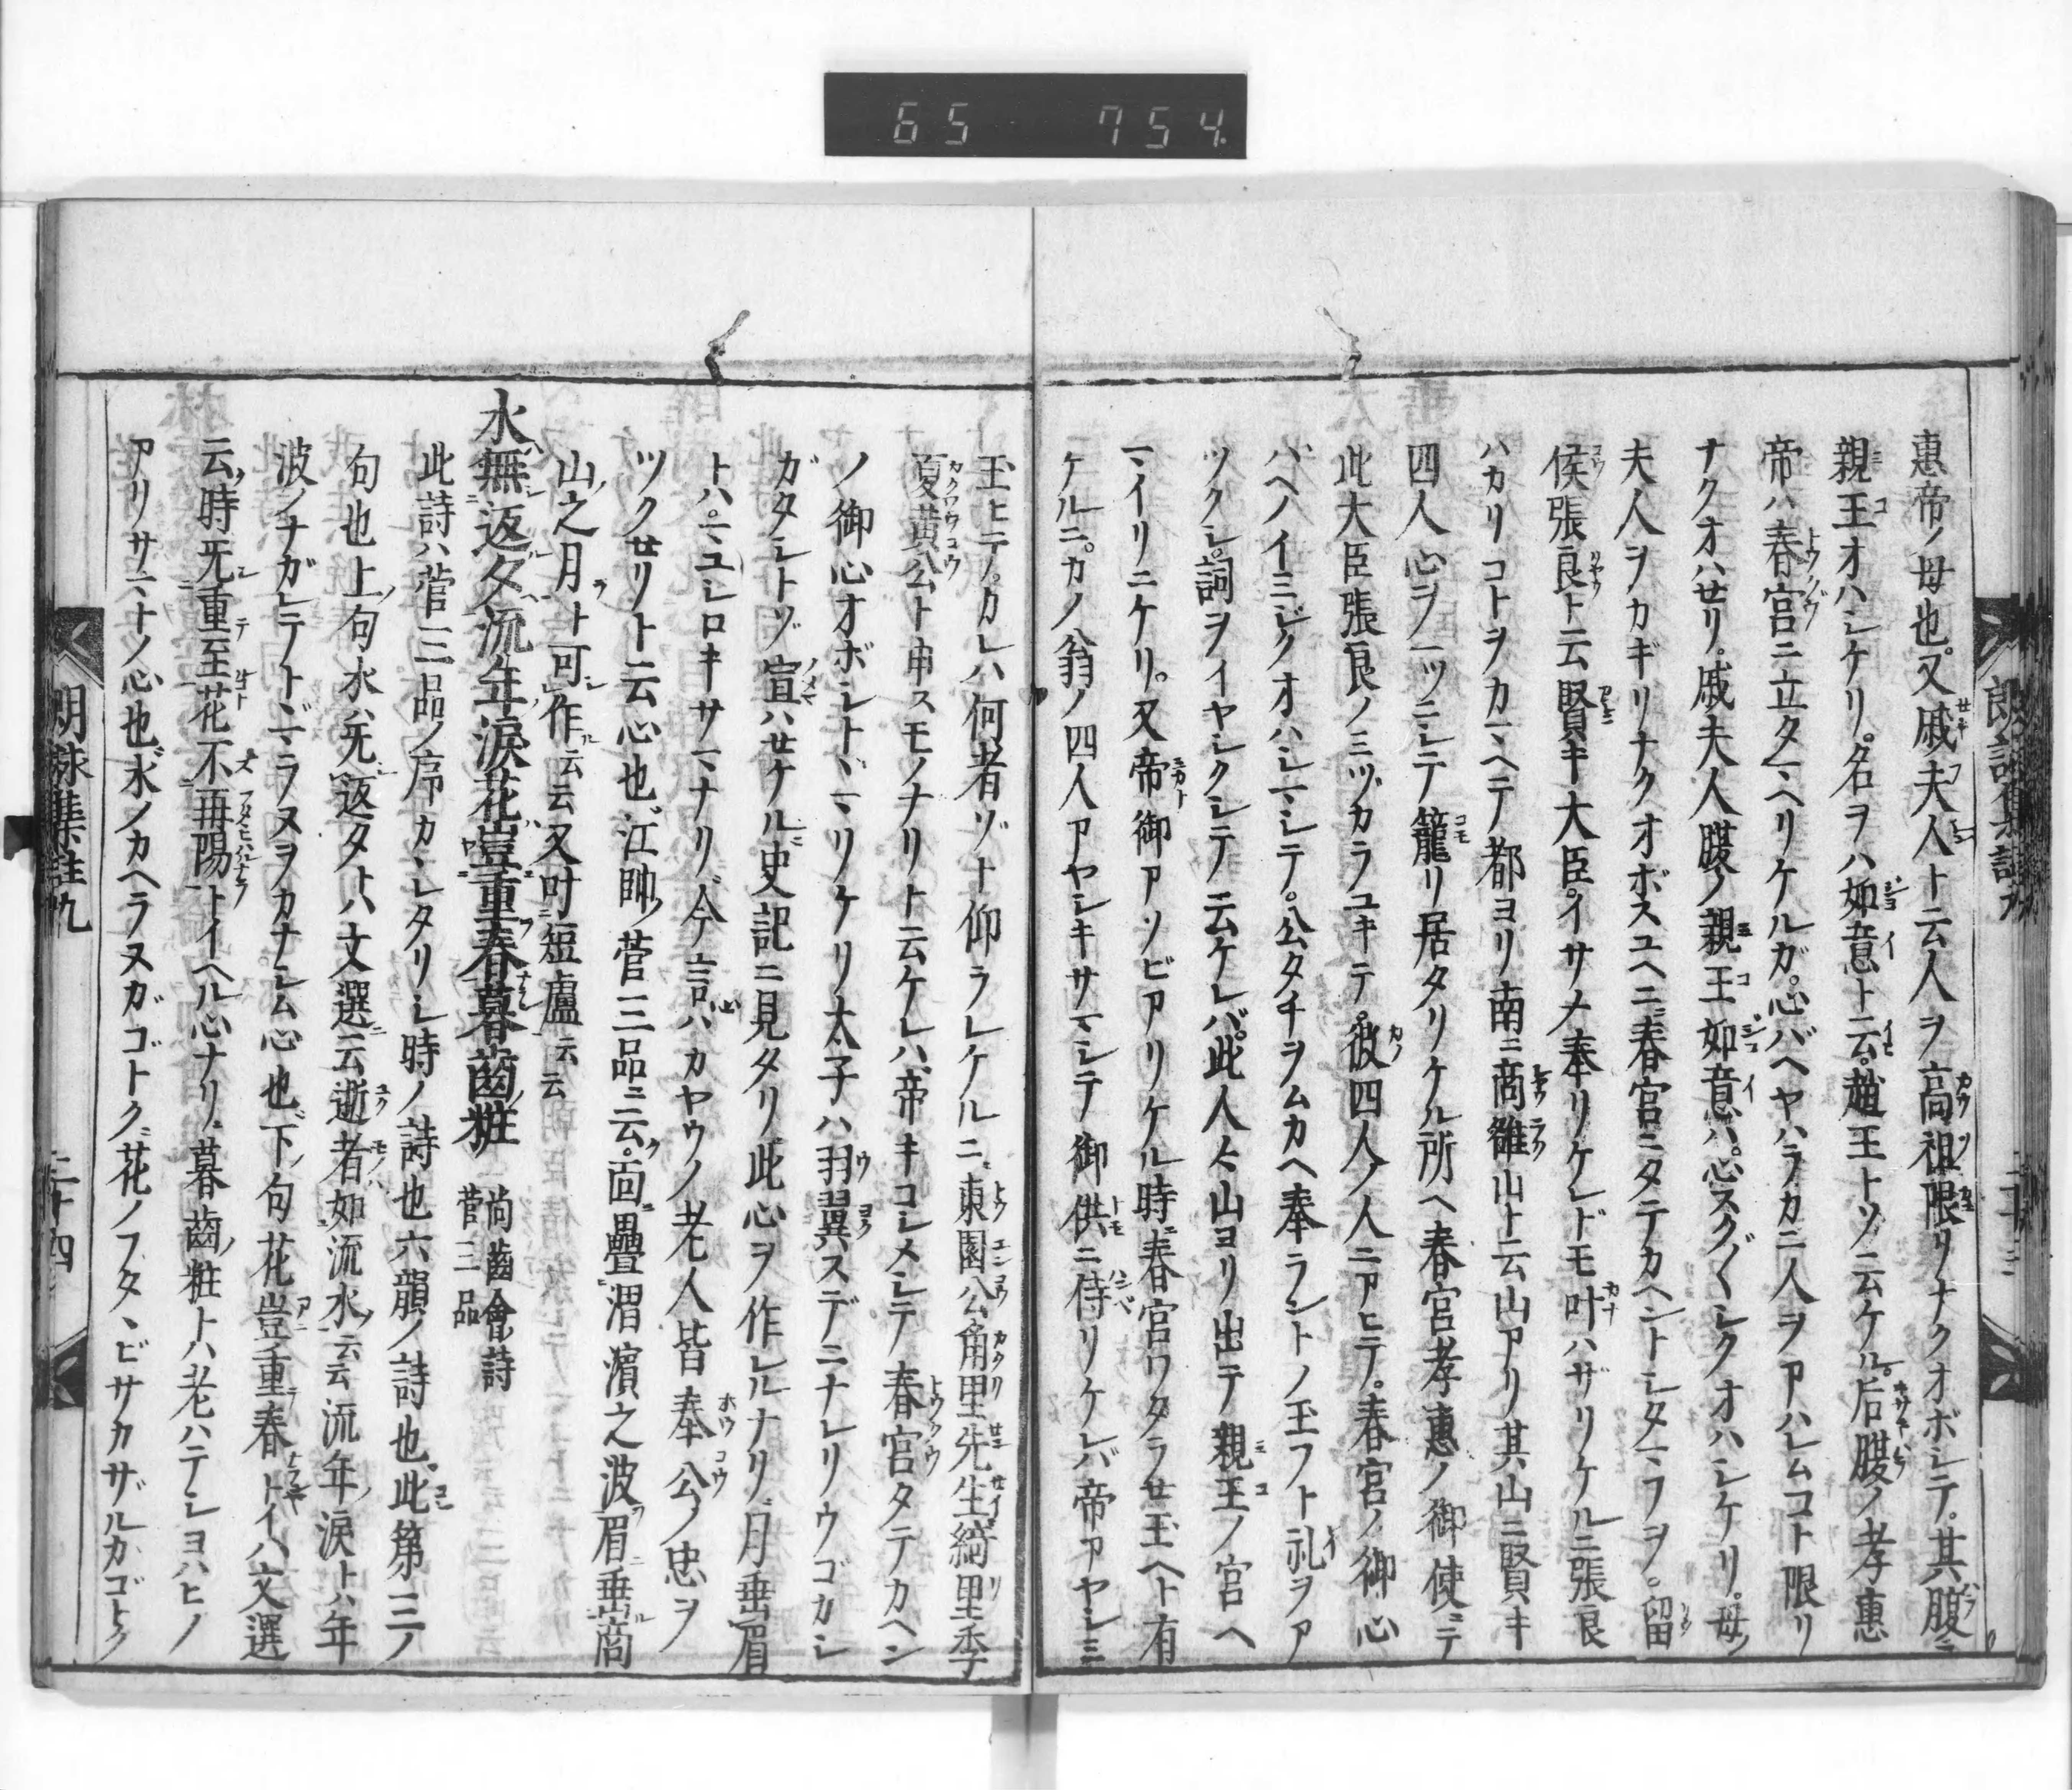 65 754
惠帝ノ母也。又戚夫人ト云人ヲ高祖限リナクオボシテ。其腹ニ
親王オハシケリ。名ヲハ如意ト云。趙王トソ云ケル。后腹ノ孝惠
帝ハ春宮ニ立タマヘリケルガ。心バヘヤハラカニ人ヲアハレムコト限リ
ナクオハセリ。戚夫人腹ノ親王如意ハ。心スグ〱シクオハシケリ。母ノ
夫人ヲカギリナクオボスユヘニ。春宮ニタテカヘントシタマフヲ。留
侯張良ト云賢キ大臣。イサメ奉リケレドモ叶ハザリケルニ張良
ハカリコトヲカマヘテ都ヨリ南ニ商雒山ト云山アリ其山ニ賢キ
四人心ヲ一ツニシテ籠リ居タリケル所ヘ春宮孝惠ノ御使ニテ
此大臣張良ノミヅカラユキテ。彼四人ノ人ニアヒテ。春宮ノ御心
バヘノイミジクオハシマシテ。公タチヲムカヘ奉ラントノ玉フト礼ヲア
ツクシ。詞ヲイヤシクシテ云ケレバ。此人々山ヨリ出テ親王ノ宮ヘ
マイリニケリ。又帝御アソビアリケル時ニ春宮ワタラセ玉ヘト有
ケルニ。カノ翁ノ四人アヤシキサマシテ御供ニ侍リケレバ帝アヤシミ
玉ヒテ。カレハ何者ゾト仰ラレケルニ。東園公角里先生綺里季
夏黄公ト申スモノナリト云ケレハ。帝キコシメシテ春宮タテカヘン
ノ御心オボシトヾマリケリ太子ハ羽翼スデニナレリウゴカシ
ガタシトゾ宣ハセケル。史記ニ見タリ此心ヲ作レルナリ。月垂眉
トハ。マユシロキサマナリ。今言ハカヤウノ老人皆奉公ノ忠ヲ
ツクセリト云心也。江帥ノ菅三品ニ云。面疊渭濱之波眉垂商
山之月ト可作云云又叶短盧云云
水無返夕流年淚花豈重春暮齒粧 尚齒會詩 菅三品
此詩ハ菅三品ノ序カヽレタリシ時ノ詩也六韻ノ詩也。此第三ノ
句也上句水ハ旡返タトハ文選云逝者如流水云云流年淚トハ年
波ノナガレテトヾマラヌヲカナシム心也。下句花豈重春トイハ文選
云時旡重至花不再陽トイヘル心ナリ。暮齒ノ粧トハ老ハテシヨハヒノ
アリサマトノ心也。水ノカヘラヌガゴトク。花ノフタヽビサカザルカゴトク
朗詠集註九 二十四